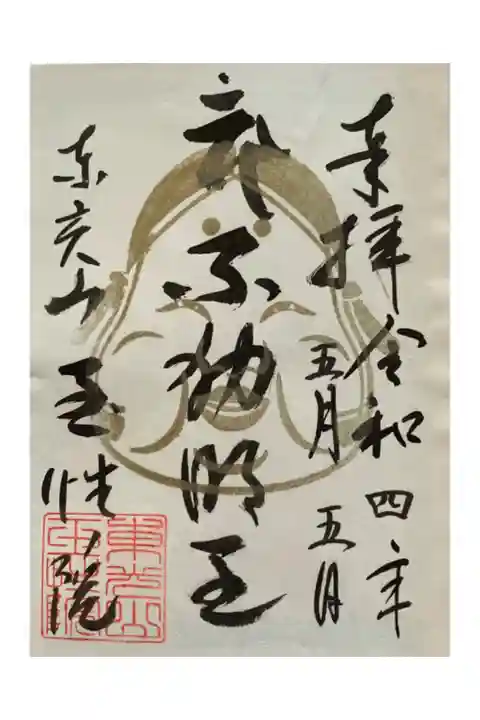 奉拝 令和四年
五月 五日
不動明王
東光山 玉性院
東光山
玉性院